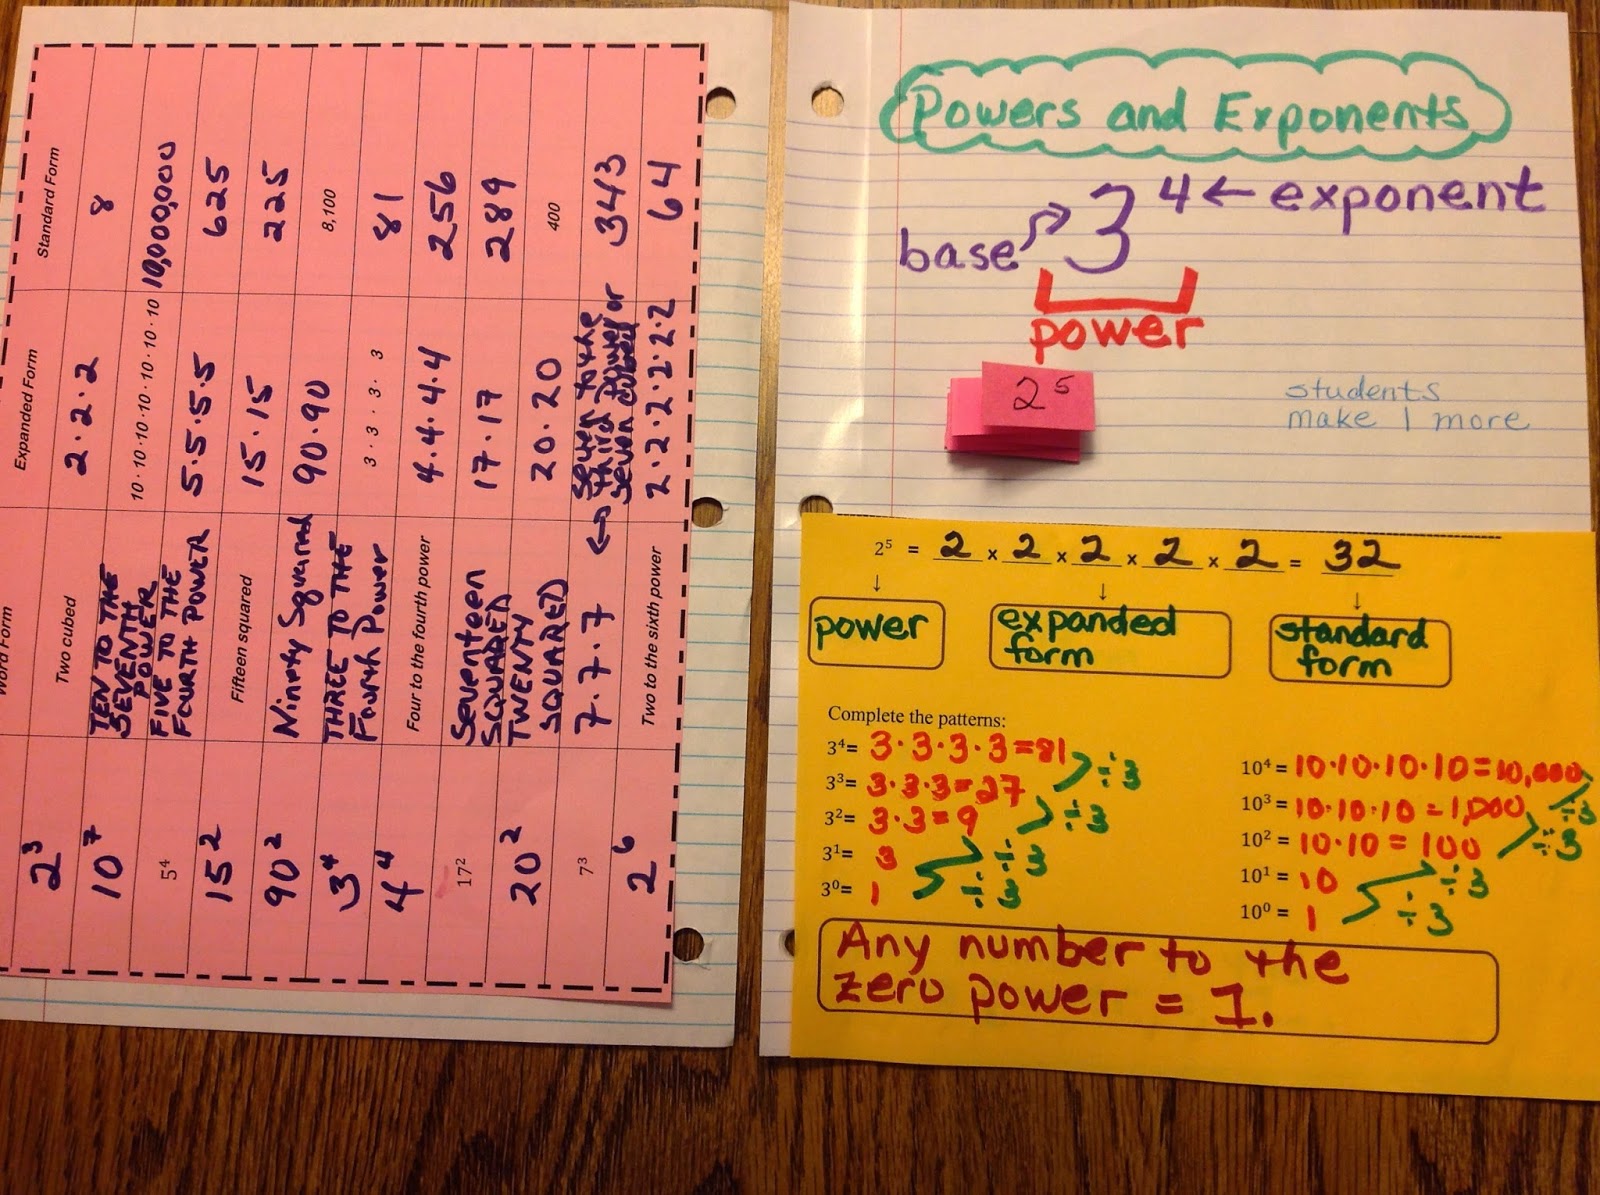 Word Form Expanded Form Standard Form
2³ Two cubed 2·2·2 8
10⁷ TEN TO THE SEVENTH POWER 10·10·10·10·10·10·10 10,000,000
5⁴ FIVE TO THE FOURTH POWER 5·5·5·5 625
15² Fifteen squared 15·15 225
90² Ninety Squared 90·90 8,100
3⁴ THREE TO THE Fourth Power 3·3·3·3 81
4⁴ Four to the fourth power 4·4·4·4 256
17² Seventeen SQUARED 17·17 289
20² TWENTY SQUARED 20·20 400
7³ 7·7·7 ↔ Seven to the third power or seven cubed 343
2⁶ Two to the sixth power 2·2·2·2·2·2 64
Powers and Exponents
3⁴ ← exponent
base
power
2⁵
students
make 1 more
2⁵ = 2 × 2 × 2 × 2 × 2 = 32
↓ ↓ ↓
power expanded form standard form
Complete the patterns:
3⁴= 3·3·3·3=81 ÷3
3³= 3·3·3=27 ÷3
3²= 3·3=9 ÷3
3¹= 3 ÷3
3⁰= 1
10⁴ = 10·10·10·10=10,000 ÷3
10³ = 10·10·10=1,000 ÷3
10² = 10·10=100 ÷3
10¹ = 10 ÷3
10⁰ = 1
Any number to the
zero power = 1.